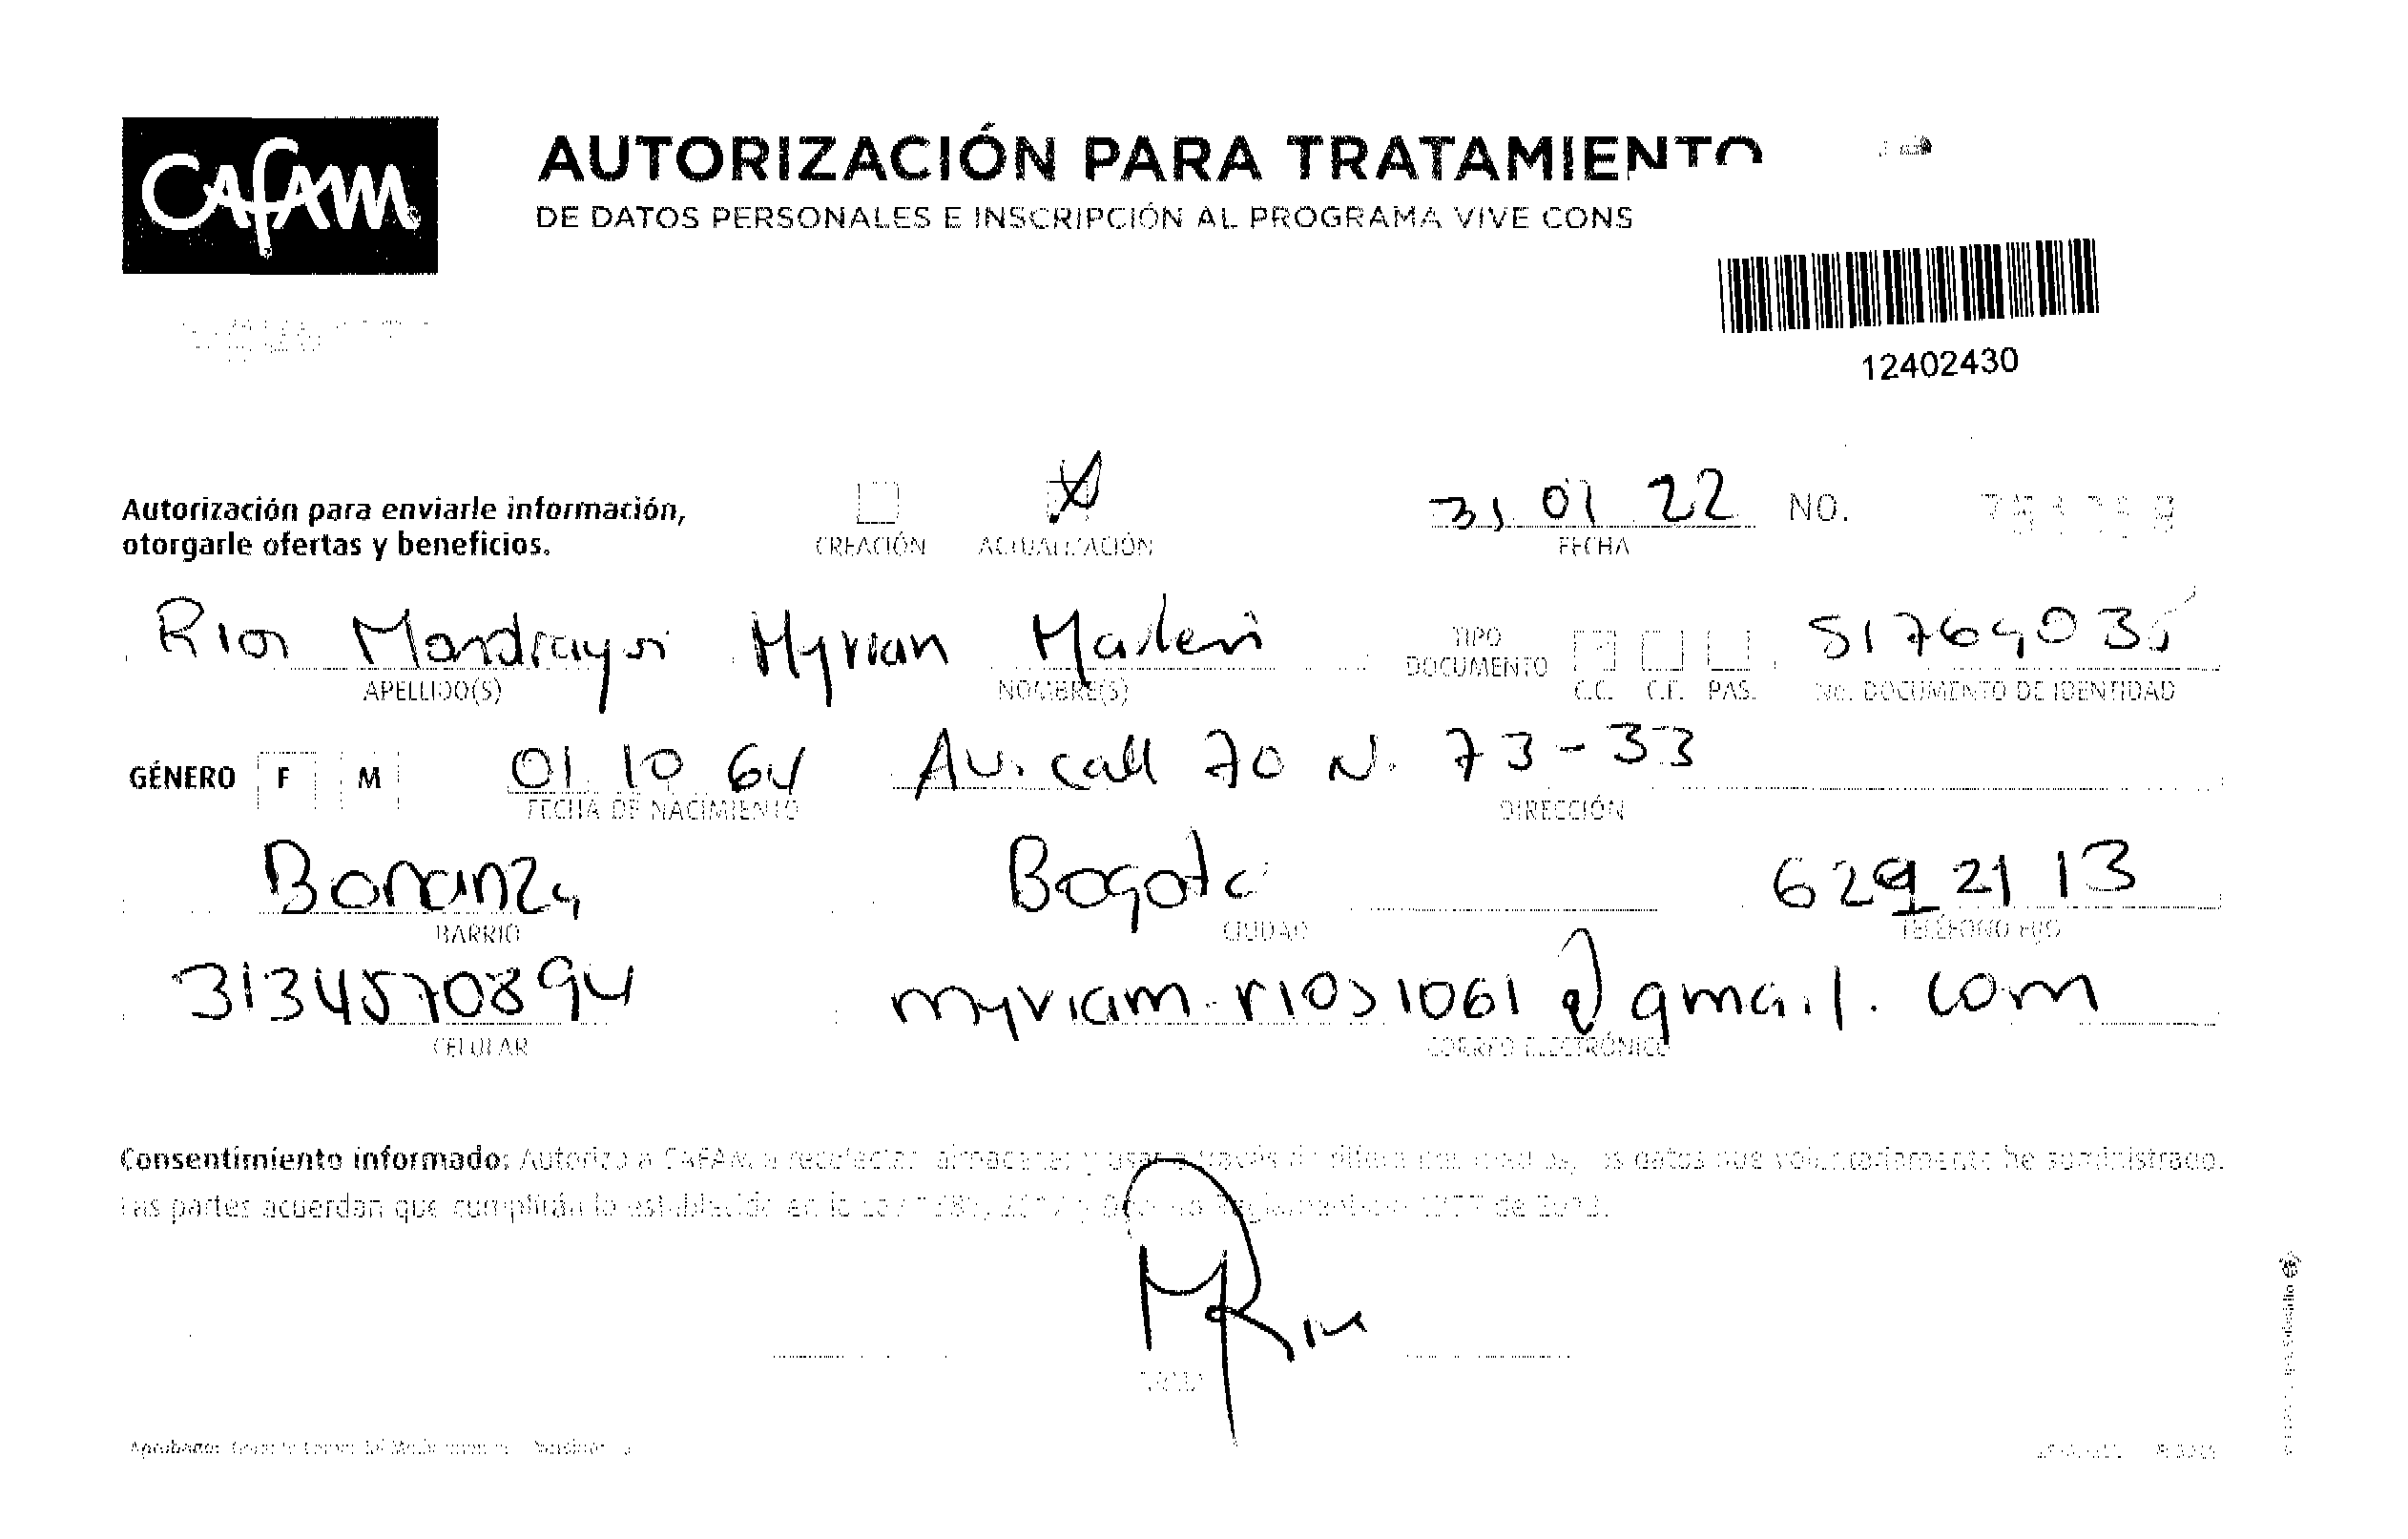 CAFAM
AUTORIZACIÓN PARA TRATAMIENTO
DE DATOS PERSONALES E INSCRIPCIÓN AL PROGRAMA VIVE CONS
12402430
Autorización para enviarle información,
otorgarle ofertas y beneficios.
CREACIÓN ACTUALIZACIÓN
31 01 22 NO.
FECHA
Rios Mondragon Myrian Marleni
TIPO DOCUMENTO C.C. C.E. PAS.
51764035
APELLIDO(S) NOMBRE(S) No. DOCUMENTO DE IDENTIDAD
GÉNERO F M 01 10 64 Av. call 70 N. 73-33
FECHA DE NACIMIENTO DIRECCIÓN
Bonanza Bogota 629 21 13
BARRIO CIUDAD TELÉFONO FIJO
3134570894 myriam-rios1061@gmail.com
CELULAR CORREO ELECTRÓNICO
Consentimiento informado: Autorizo a CAFAM a recolectar, almacenar y usar a través de datos que voluntariamente he suministrado.
Las partes acuerdan que cumplirán lo establecido en la de
FIRMA